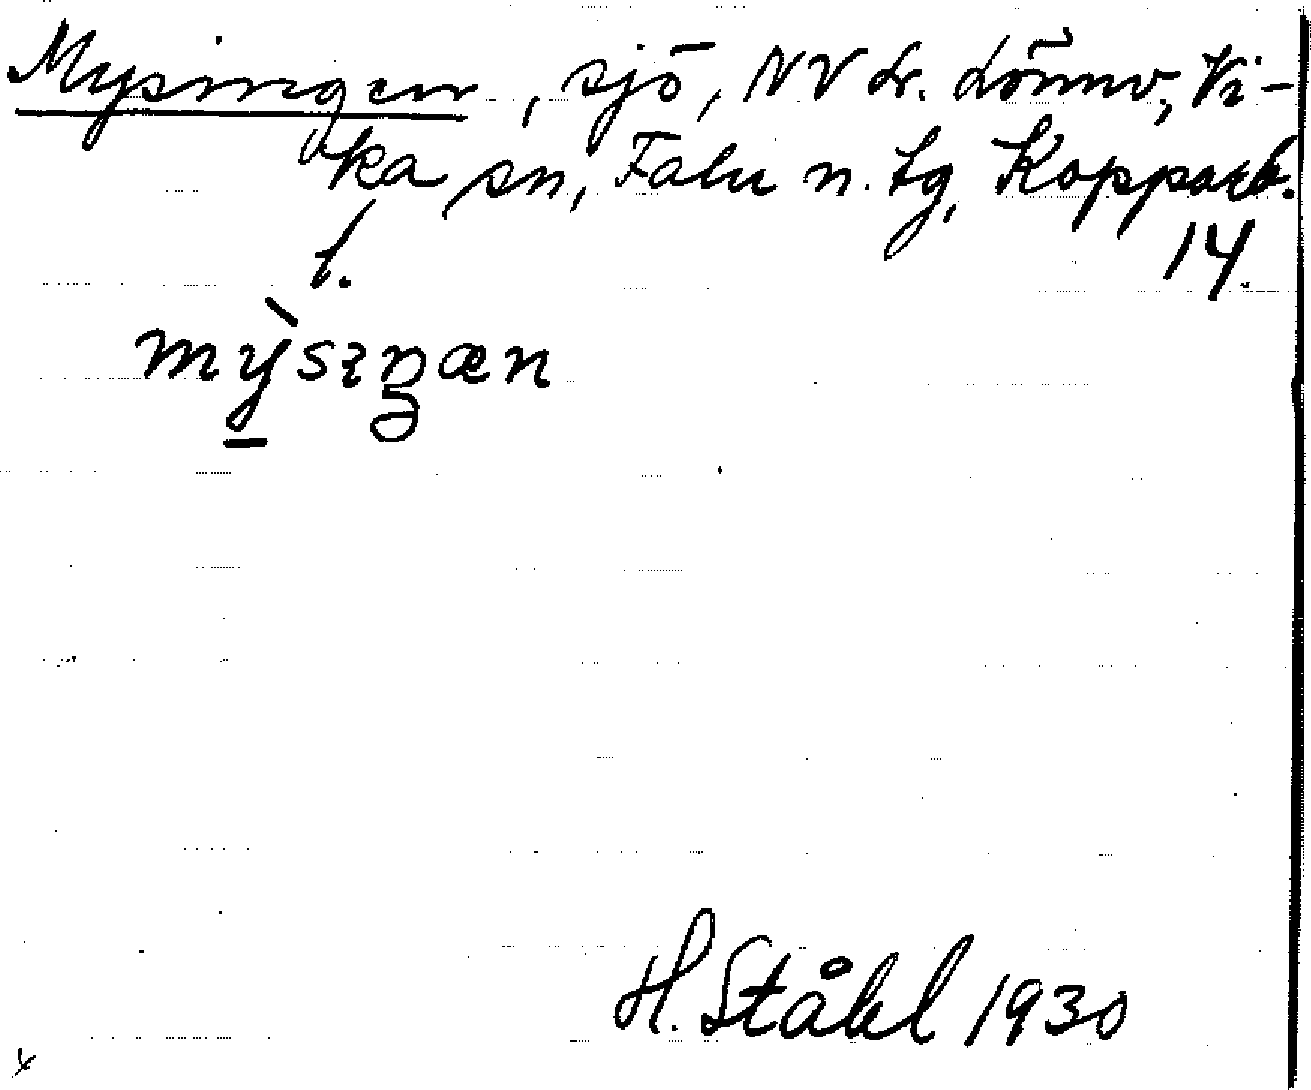 Mysingen, sjö, NV St. Lönnv, Vi-
ka sn, Falu n. tg, Kopparb.
l. 14.
mỳsıŋæn
H. Ståhl 1930